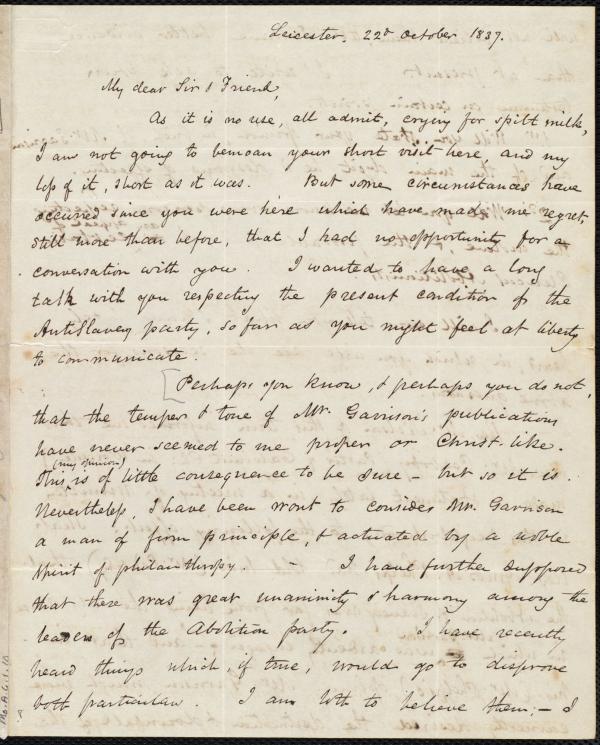 Leicester, 22d October 1837.
My dear Sir & Friend,
As it is no use, all admit, crying for spilt milk,
I am not going to bemoan your short visit here, and my
loss of it, short as it was. But some circumstances have
occurred since you were here which have made me regret,
still more than before, that I had no opportunity for a
conversation with you. I wanted to have a long
talk with you respecting the present condition of the
AntiSlavery party, so far as you might feel at liberty
to communicate.
[Perhaps you know, & perhaps you do not,
that the temper & tone of Mr. Garrison's publications
have never seemed to me proper or Christ-like.
(my opinion)
This, is of little consequence to be sure - but so it is.
Nevertheless, I have been wont to consider Mr. Garrison
a man of firm principle, & actuated by a noble
spirit of philanthropy. - I have further supposed
that there was great unanimity & harmony among the
leaders of the Abolition party. I have recently
heard things which, if true, would go to disprove
both particulars. I am loth to believe them; - I
Ms.A.1.2